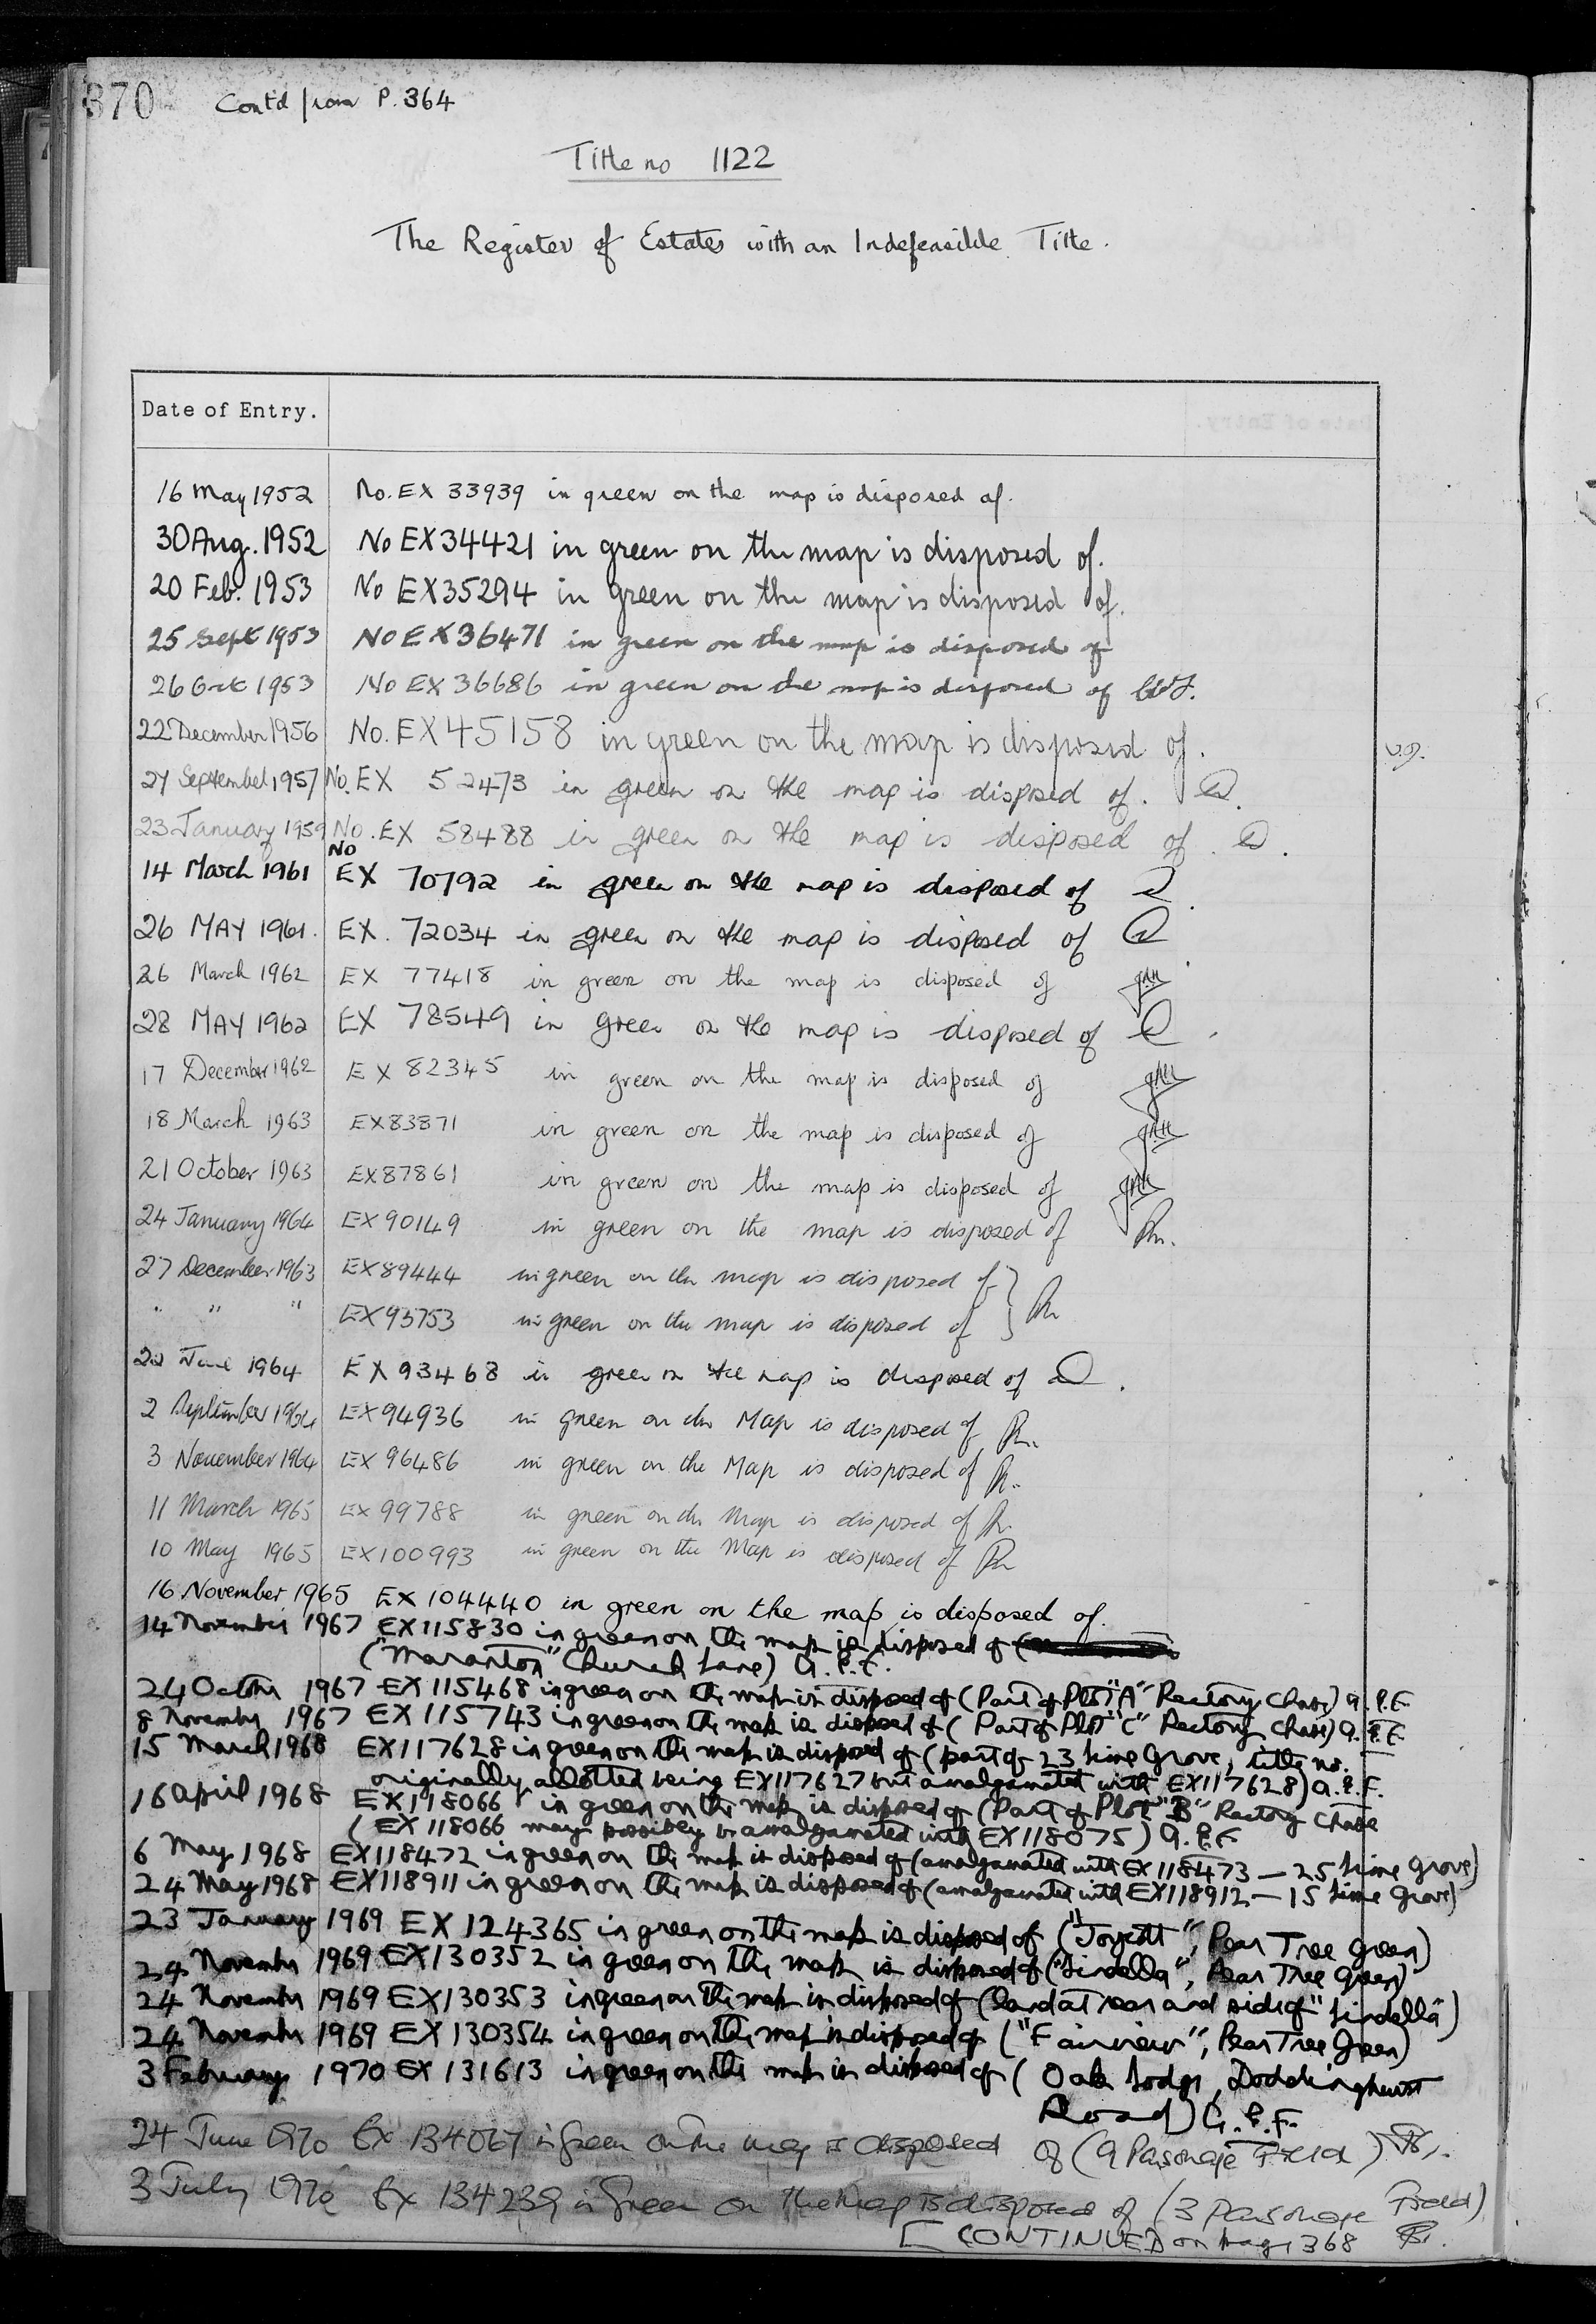 370 Contd from P. 364
Title no 1122
The Register of Estates with an Indefeasible Title.
Date of Entry.
16 May 1952 No. EX 33939 in green on the map is disposed of.
30 Aug. 1952 No EX34421 in green on the map is disposed of.
20 Feb. 1953 No EX35294 in green on the map is disposed of.
25 Sept 1953 No EX36471 in green on the map is disposed of
26 Oct 1953 No EX 36686 in green on the map is disposed of
22 December 1956 No. EX45158 in green on the map is disposed of.
27 September 1957 No. EX 52473 in green on the map is disposed of.
23 January 1959 No. EX 58488 in green on the map is disposed of.
No
14 March 1961 EX 70792 in green on the map is disposed of
26 MAY 1961. EX. 72034 in green on the map is disposed of
26 March 1962 EX 77418 in green on the map is disposed of
28 MAY 1962 EX 78549 in green on the map is disposed of
17 December 1962 EX 82345 in green on the map is disposed of
18 March 1963 EX83871 in green on the map is disposed of
21 October 1963 EX87861 in green on the map is disposed of
24 January 1964 EX90149 in green on the map is disposed of
27 December 1963 EX89444 in green on the map is disposed of
" " " EX93753 in green on the map is disposed of
June 1964 EX93468 in green on the map is disposed of
2 September 1964 EX94936 in green on the Map is disposed of
3 November 1964 EX96486 in green on the Map is disposed of
11 March 1965 EX99788 in green on the Map is disposed of
10 May 1965 EX100993 in green on the Map is disposed of
16 November 1965 EX104440 in green on the map is disposed of.
14 November 1967 EX115830 in green on the map is disposed of
("Maranton" Church Lane) G.P.F.
24 October 1967 EX115468 in green on the map is disposed of (Part of Plot "A" Rectory Chase) G.P.F.
8 November 1967 EX115743 in green on the map is disposed of (Part of Plot "C" Rectory Chase) G.P.F.
15 March 1968 EX117628 in green on the map is disposed of (part of 23 Lime Grove, title no.
originally allotted being EX117627 but amalgamated with EX117628) G.P.F.
16 April 1968 EX118066 in green on the map is disposed of (Part of Plot "B" Rectory Chase
(EX118066 may possibly be amalgamated with EX118075) G.P.F.
6 May 1968 EX118472 in green on the map is disposed of (amalgamated with EX118473 — 25 Lime Grove)
24 May 1968 EX118911 in green on the map is disposed of (amalgamated with EX118912 — 15 Lime Grove)
23 January 1969 EX124365 in green on the map is disposed of ("Joycott", Pear Tree Green)
24 November 1969 EX130352 in green on the map is disposed of ("Lindella", Pear Tree Green)
24 November 1969 EX130353 in green on the map is disposed of (land at rear and side of "Lindella")
24 November 1969 EX130354 in green on the map is disposed of ("Fairview", Pear Tree Green)
3 February 1970 EX131613 in green on the map is disposed of (Oak Lodge, Doddinghurst
Road) G.P.F.
24 June 1970 Ex 134067 in Green on the map is disposed of (9 Parsonage Field)
3 July 1970 Ex 134239 in Green on the Map is disposed of (3 Parsonage Field)
[CONTINUED on page 368